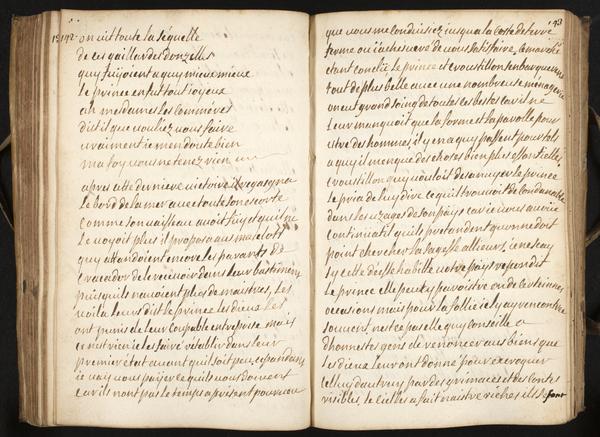 142
on vit toute la sequelle
de ces gaillardes donzelles
quy fuijoient a quy mieux mieux
le prince en fut tout joyeux
ah mesdames les commeres
dit il que vouliez vous faire
vraiment je m'en doute bien
ma foy vous ne tenez rien
apres cette derniere victoire il regagna
le bord de la mer avec toute son escorte
comme son vaisseau avoit fuy et qu'il ne
le voyoit plus il proposa aux matelots
quy attendoient encore les parants de
de le recevoir dans leur bastiment
puis quils n'avoient plus de maistres, les
voila leurs dit le prince les dieux les
ont punis de leur coupable entreprise mais
les faire retablir dans leur
premier état avant quil soit peu, cependant
je vay vous payer ce quils vous doivent
car ils n'ont pas le temps a present pourveu
143
que vous me conduisiez jusqua la coste de terre
ferme ou j'acheveré de vous satisfaire, le marché
etant conclu le prince et croustillon s'embarquerent
tout de plus belle avec une nombreuse ménagerie
on eut grand soing de toutes les bestes car il ne
leur manquoit que la forme et la parolle pour
estre des hommes, il y en a quy passent pour tels
a quy il menque des choses bien plus essentielles
croustillon quy vouloit desennuyer le prince
le pria de luy dire ce quil trouvoit de
dans les uzages de son pays car je vous avoue
continua til quils pretendent quon ne doit
point chercher la sagesse allieurs, je ne scay
sy cette deesse habitte votre pays repondit
le prince elle peut y paroistre en de certaines
occasions mais pour la follie je l'y ay rencontré
souvent, nest ce pas elle quy conseille a
d'honnestes gens de renoncer aux biens que
les dieux leur ont donné pour excroquer
celluy d'autruy par des grimaces et des contes
risibles, le ciel les a fait naistre riches, ils se
font